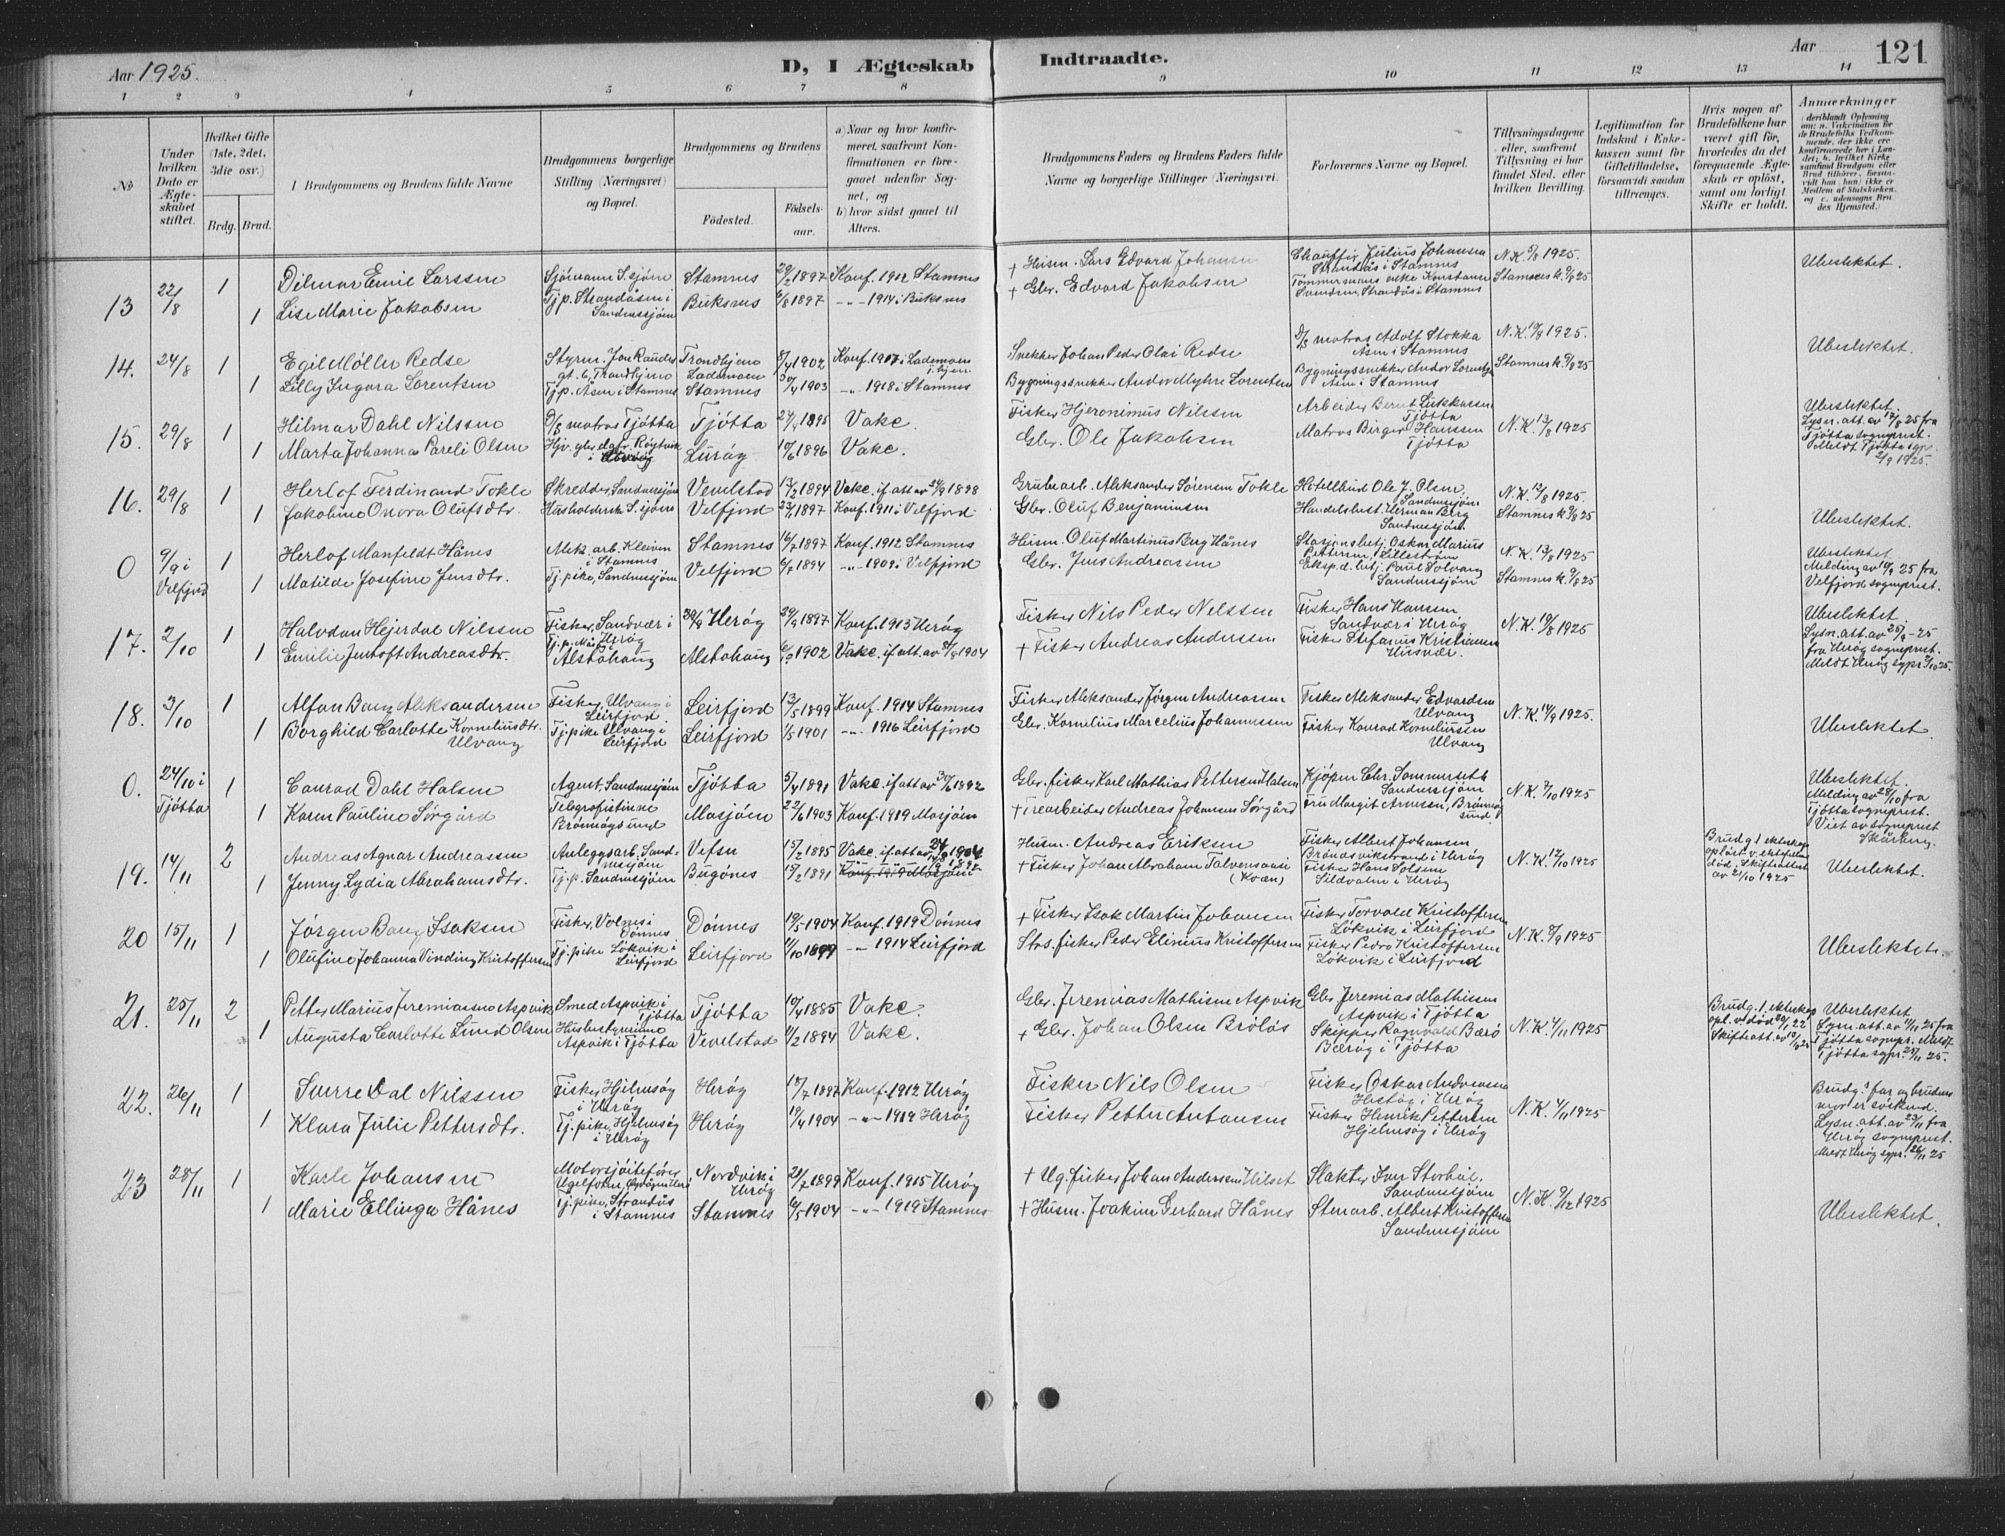 Aar 1925.
D, I Ægteskab Indtraadte.
Aar 121
1 2 3 4 5 6 7 8 9 10 11 12 13 14
No
Under hvilken Dato er Ægteskabet stiftet.
Hvilket Gifte (1ste, 2det, 3die osv.)
Brdg. Brud.
Brudgommens og Brudens fulde Navne
Brudgommens borgerlige Stilling (Næringsvei) og Bopæl.
Brudgommens og Brudens
Födested.
Födselsaar.
a) Naar og hvor konfirmeret, saafremt Konfirmationen er foregaaet udenfor Sognet, og
b) hvor sidst gaaet til Alters.
Brudgommens Faders og Brudens Faders fulde Navne og borgerlige Stillinger (Næringsvei).
Forlovernes Navne og Bopæl.
Tillysningsdagene eller, saafremt Tillysning ei har fundet Sted, efter hvilken Bevilling.
Legitimation for Indskud i Enkekassen samt for Giftetilladelse, forsaavidt saadan tiltrænges.
Hvis nogen af Brudefolkene har været gift før, hvorledes da det foregaaende Ægteskab er opløst, samt om lovligt Skifte er holdt.
Anmærkninger
13 22/8 1 Dilmar Emil Larssen Sjömann S.sjöen Stamnes 29/2 1897 Konf. 1912 Stamnes + Husm. Lars Edvard Johansen Chauffør Julius Johansen Strandås i Stamnes N.K. 5/8 1925. Ubeslektet.
1 Lise Marie Jakobsen Tj.p. Strandåsen i Sandnessjøen Buksnes 6/8 1897 -"- 1914 i Buksnes + Gbr. Edvard Jakobsen Tømmermanns enke Konstanse Svendsen, Strandås i Stamnes Stamnes k. 9/8 25
14. 24/8 1 Egil Møller Redse Trondhjem 8/4 1902 Konf. 1917 i Lademoen Snekker Johan Peder Olai Redse D/s matros Adolf Stokka Åsen i Stamnes N.K. 10/8 1925. Ubeslektet.
1 Lilly Ingvra Lorentsen Tj.p. Åsen i Stamnes Stamnes 30/4 1903 -"- 1918 i Stamnes Bygningssnekker Andor Myhre Lorentsen Bygningssnekker Andor Lorentsen Åsen i Stamnes Stamnes k. 9/8 25
15. 29/8 1 Hilmar Dahl Nilssen D/s matros Tjøtta Tjøtta 24/4 1895 Vakc. Fisker Hjeronimus Nilssen Arbeider Bernt Lukkassen Tjøtta N.K. 13/8 1925 Ubeslektet.
1 Marta Johanna Pareli Olsen i Lurøy Lurøy 17/6 1896 Vakc. Gbr. Ole Jakobsen Matros Birger Hanssen Tjøtta Lysn. att. av 17/8 25 fra Tjøtta sogneprest. Meldt Tjøtta sgpr. 2/9 1925.
16. 29/8 1 Herlof Ferdinand Tokle Skredder, Sandnessjøen Vevelstad 13/2 1894 Vakc. if. att. av 24/9 1898 Grubearb. Aleksander Sørensen Tokle Hotellbud Ole J. Olsen Sandnessjøen N.K. 13/8 1925.
1 Jakobine Onora Olufsdtr. Husholderske S.sjøen Velfjord 23/1 1897 Konf. 1911 i Velfjord Gbr. Oluf Benjaminsen Handelsbest. Herman Berg Sandnessjøen Stamnes k. 9/8 25 Ubeslektet.
0 9/9 i Velfjord 1 Herlof Manfeldt Hånes Mek. arb. Kleiven i Stamnes Stamnes 16/2 1897 Konf. 1912 Stamnes Husm. Oluf Martinus Berg Hånes Stasjonsbetj. Oskar Marius Pettersen, Lillestrøm N.K. 13/8 1925 Ubeslektet.
1 Matilde Josefine Jensdtr. Tj.pike, Sandnessjøen Velfjord 6/7 1894 -"- 1909 i Velfjord Gbr. Jens Andreassen Eksp.d. betj. Paul Solvang Sandnessjøen Stamnes k. 9/8 25 Melding av 10/9 25 fra Velfjord sogneprest.
17. 2/10 1 Halvdan Hejerdal Nilssen Fisker, Sandvær i Herøy Herøy 29/9 1897 Konf. 1913 Herøy Fisker Nils Peder Nelssen Fisker Hans Hansen Sandvær i Herøy N.K. 19/8 1925 Ubeslektet.
1 Emilie Jentoft Andreasdtr. Alstahaug Alstahaug 1902 Vakc. if. att. av 1904 + Fisker Andreas Anderssen Fisker Stefanus Kristiansen Husvær. Lysn. att. av 25/9 - 25 fra Herøy sogneprest. Meldt Herøy sgpr. 2/10 25.
18. 3/10 1 Alfon Bang Aleksandersen Fisker, Ulvang i Leirfjord. Leirfjord 13/5 1899 Konf. 1914 Stamnes Fisker Aleksander Jørgen Andreassen Fisker Aleksander Edvardsen Ulvang N.K. 14/9 1925.
1 Borghild Carlotte Korneliusdtr. Ulvang Tj.pike Ulvang i Leirfjord Leirfjord 1/5 1901 -"- 1916 Leirfjord Gbr. Kornelius Marcelius Johannessen Fisker Konrad Korneliussen Ulvang Ubeslektet.
0. 24/10 i Tjøtta 1 Conrad Dahl Halsen Agent, Sandnessjøen Tjøtta 5/4 1891 Vakc. if att av 30/6 1892 Gbr. fisker Karl Mathias Pettersen Halsen Kjøpm. Chr. Sommerseth Sandnessjøen N.K. 3/10 1925 Ubeslektet.
1 Karen Pauline Sørgård Telegrafistinne Brønnøysund Mosjøen 22/6 1903 Konf. 1919 Mosjøen + Trearbeider Andreas Johansen Sørgård Fru Margit Arnesen, Brønnøysund. Melding av 28/10 fra Tjøtta sogneprest. Viet av sogneprest
19. 14/11 2 Andreas Agnar Andreassen Anleggsarb. Sandnessjøen Vefsn 15/2 1895 Vakc. if att av Husm. Andreas Eriksen Fisker Albert Johansen Brøndsvikstrand i Herøy N.K. 12/10 1925
1 Jenny Lydia Abrahamsdtr. Tj.p. Sandnessjøen Bugønes 15/2 1891 Konf. 1919 Mosjøen + Fisker Johan Abraham Talvensaari (Kvæn) Fisker Hans Solsem Sildvalen i Herøy Ubeslektet.
20 15/11 1 Jørgen Bang Isaksen Fisker, Dønnes Dønnes 19/5 1904 Konf. 1919 Dønnes + Fisker Isak Martin Johansen Fisker Torvald Kristoffersen Løkvik i Leirfjord N.K. 9/9 1925
1 Olufine Johanna Vinding Kristoffersen Tj.pike Løkvik i Leirfjord Leirfjord 11/10 1899 -"- 1914 Leirfjord Stos. fisker Peder Elinius Kristoffersen Fisker Pedro Kristoffersen Løkvik i Leirfjord Ubeslektet.
21. 25/11 2 Petter Marius Jeremiassen Aspvik Smed Aspvik i Tjøtta Tjøtta 19/4 1885 Vakc. Gbr. Jeremias Mathisen Aspvik Gbr. Jeremias Mathisen Aspvik i Tjøtta Ubeslektet
1 Augusta Carlotte Lund Olsen Husbestyrinne Aspvik i Tjøtta Vevelstad 11/2 1894 Vakc. + Gbr. Johan Olsen Bröløs Skipper Ragnvald Bærö Bærøy i Tjøtta N.K. 4/11 1925 Lysn. att. av 11/11 25 fra Tjøtta sognepr. Meldt Tjøtta sgpr. 25/11 25.
22. 26/11 1 Sverre Dal Nilssen Fisker, Hjelmsøy i Herøy Herøy 17/7 1897 Konf. 1912 Herøy Fisker Nils Olsen Fisker Oskar Andreassen i Herøy Brudg.s far og brudens mor er søskend.
1 Klara Julie Pettersdtr. Tj. pike, Hjelmsøy i Herøy Herøy 19/4 1904 -"- 1919 Herøy Fisker Petter Antonsen Fisker Henrik Pettersen Hjelmsøy i Herøy N.K. 4/11 1925 Lysn. att. av 23/11 fra Herøy sogneprest. Meldt Herøy sgpr. 26/11 25
23 28/11 1 Karle Johansen Nordvik i Herøy 21/2 1899 Konf. 1915 Herøy + Ug. fisker Johan Andersen Hilset Slakter Iver Storbol. Sandnessjøen
1 Marie Ellinga Hånes Tj.pike, Strandås i Stamnes Stamnes 6/5 1904 -"- 1919 Stamnes + Husm. Joakim Gerhard Hånes Stenarb. Albert Kristoffersen Sandnessjøen N.K. 9/12 1925 Ubeslektet.